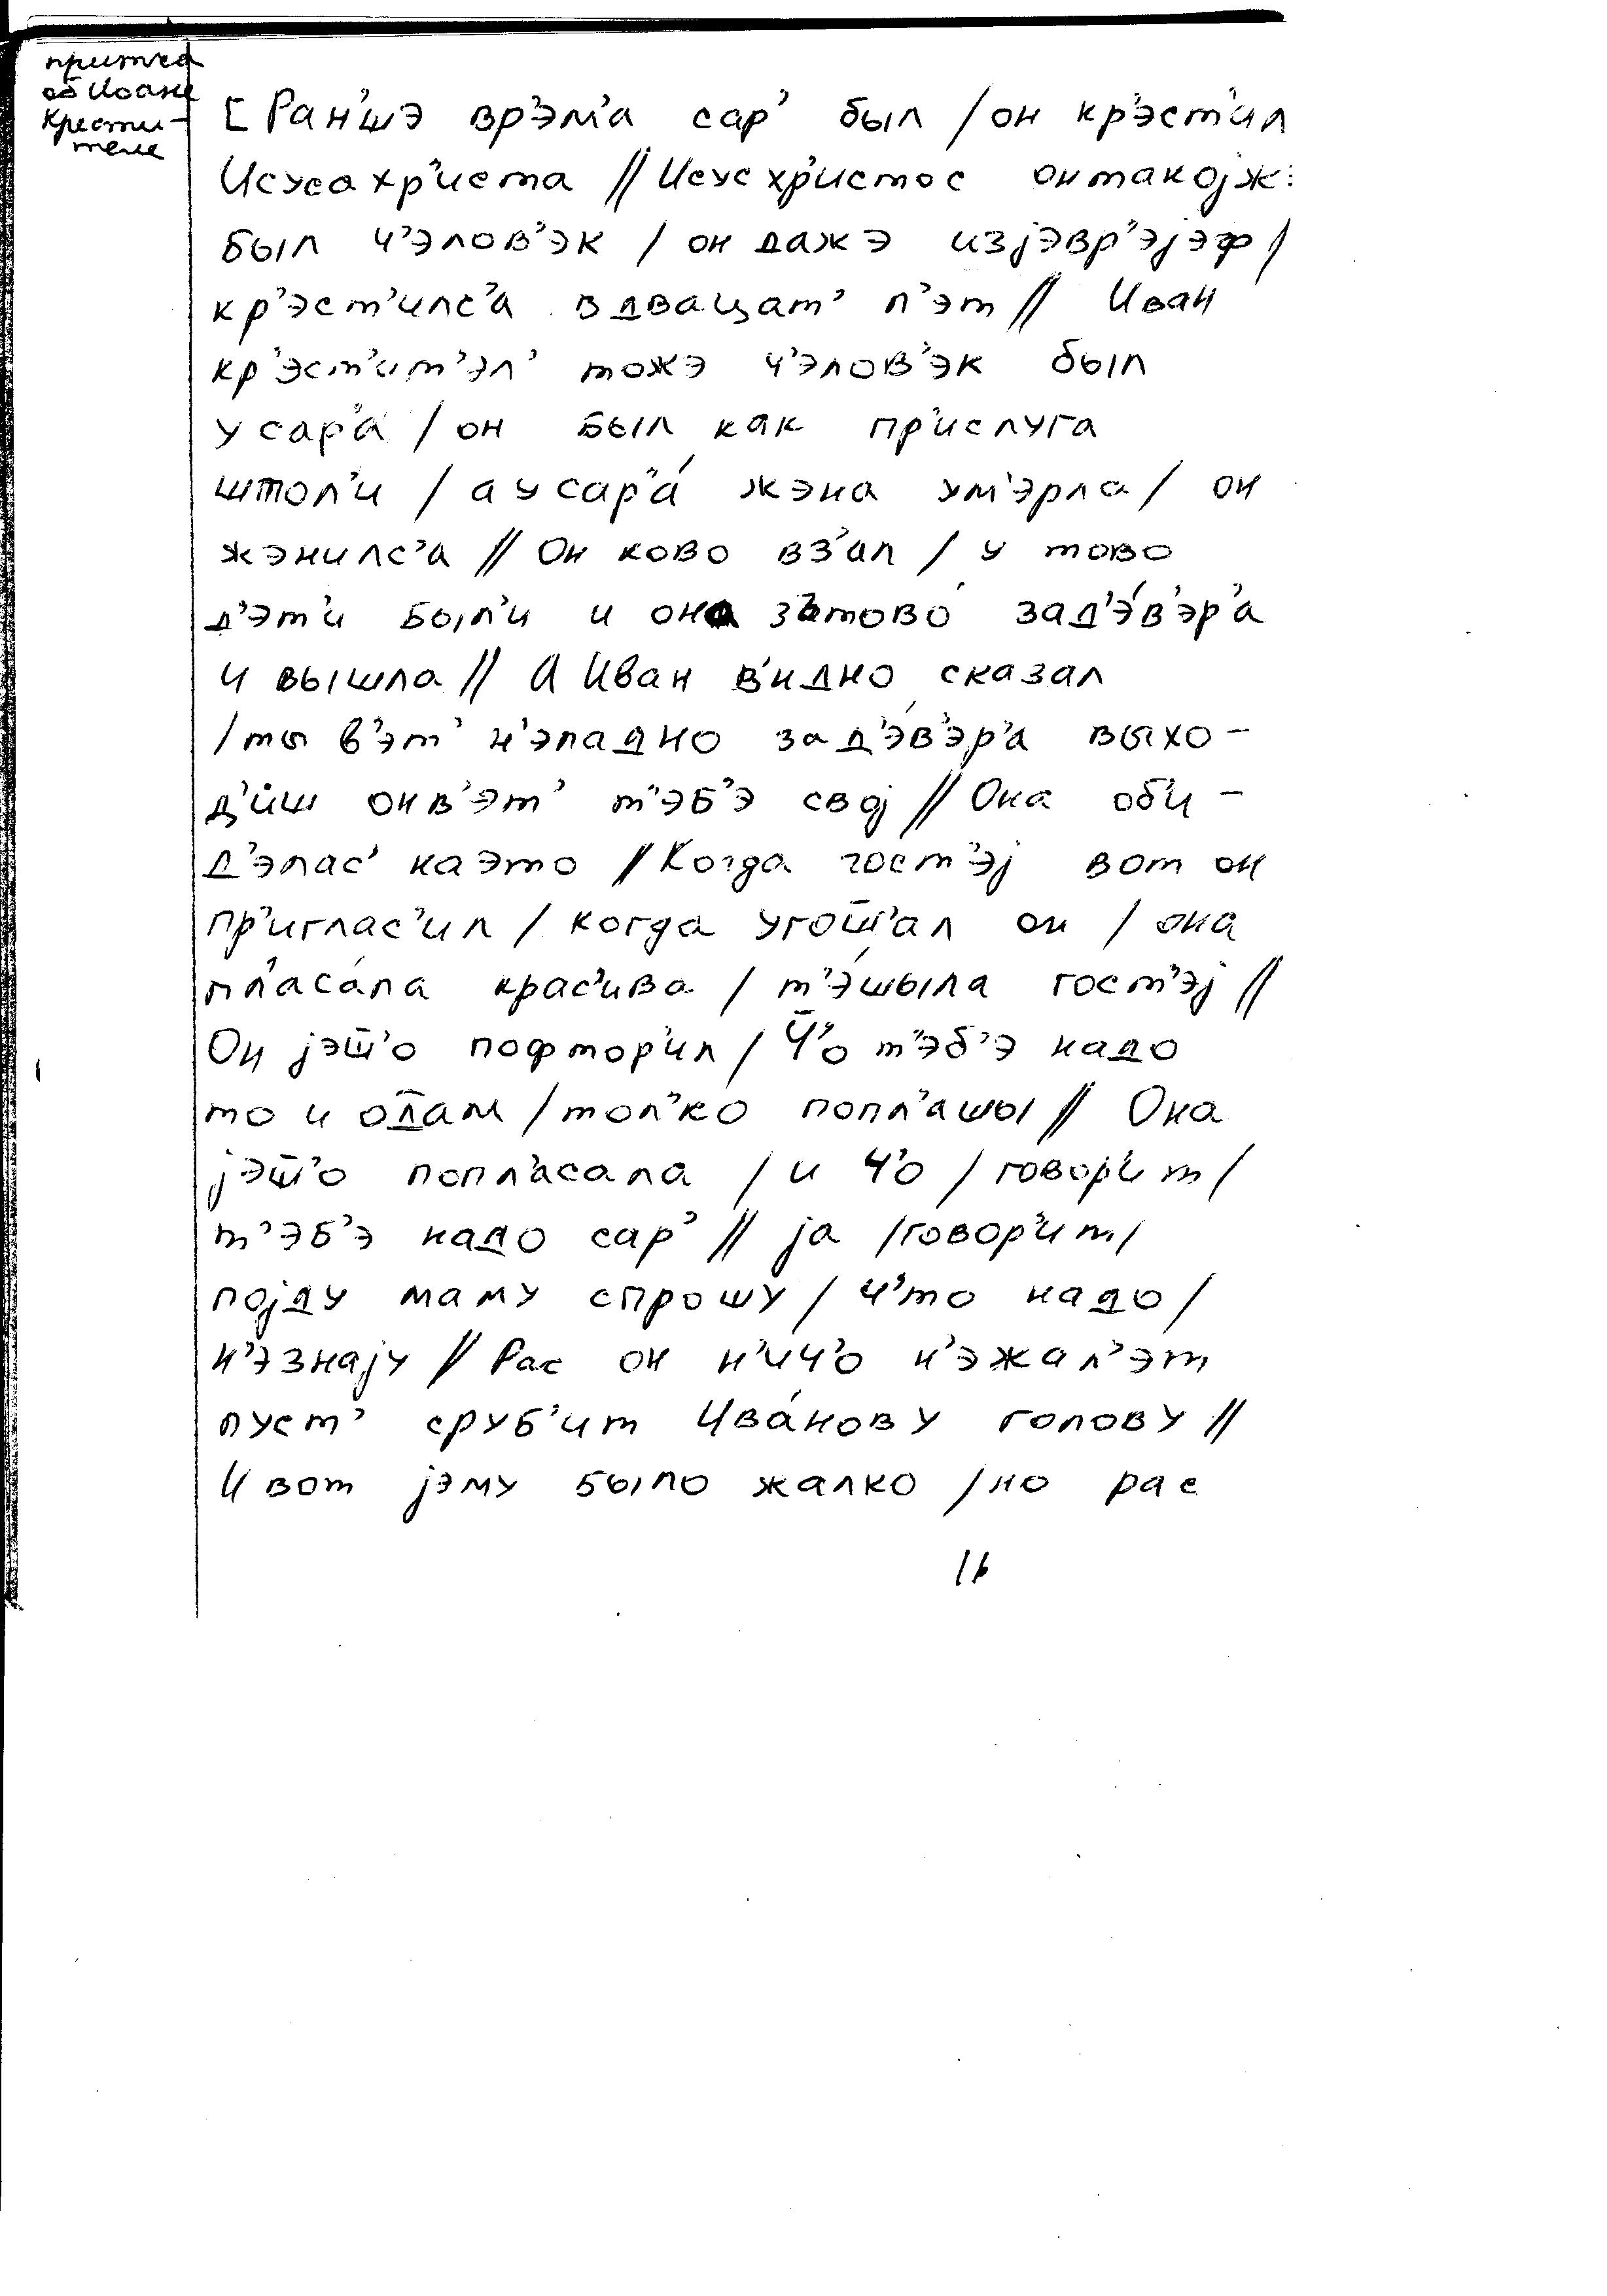 притча
об Иоане
Крести-
теле
[ Ран'шэ вр'эм'а сар' был / он кр'эст'ил
Исуса хр'иста // Исус хр'истос онтакоjж:
был ч'элов'эк / он дажэ изjэвр'эjэф /
кр'эст'илс'а вдвацат' л'эт // Иван
кр'эст'ит'эл' тожэ ч'элов'эк был
у сар'а / он был как пр'ислуга
штол'и / а у сар'á жэна ум'эрла / он
жэнилс'а // Он ково вз'ал / у тово
д'эт'и был'и и она затовó зад'э́в'эр'а
и вышла // А Иван в'идно сказал
/ ты в'эт' н'эладно зад'э́в'эр'а выхо-
д'иш онв'эт' т'эб'э своj // Она об'и-
д'элас' наэто // Когда гост'эj вот он
пр'иглас'ил / когда угош̅'ал он / она
пл'асáла крас'ива / т'э́шыла гост'эj //
Он jэш̅'о пофтор'ил / Ч'о т'эб'э надо
то и од̅ам / тол'ко попл'ашы // Она
jэш̅'о попл'асала / и ч'о / говор'ит /
т'эб'э надо сар' // jа / говор'ит /
поjду маму спрошу / ч'то надо /
н'эзнаjу // Рас он н'ич'о н'эжал'эт
пуст' сруб'ит Ивáнову голову //
И вот jэму было жалко / но рас
16